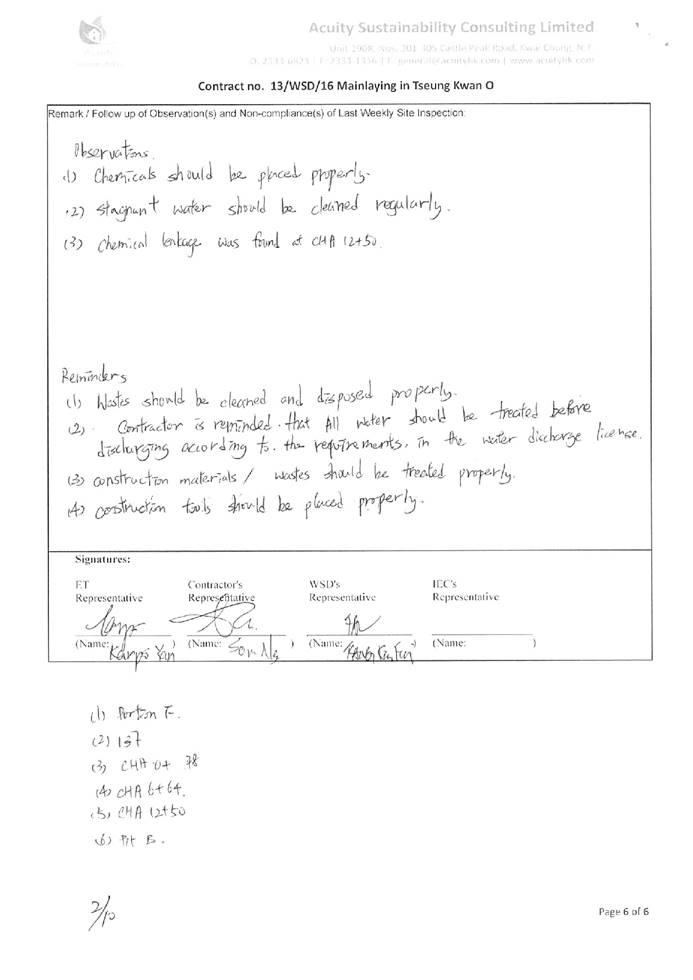 Acuity Sustainability Consulting Limited
Unit 1908, Nos. 301-305 Castle Peak Road, Kwai Chung, N.T.
O: 2333-6823 | F: 2333-1316 | E: general@acuityhk.com | www.acuityhk.com
Contract no. 13/WSD/16 Mainlaying in Tseung Kwan O
Remark / Follow up of Observation(s) and Non-compliance(s) of Last Weekly Site Inspection:
Observations.
(1) Chemicals should be placed properly.
(2) Stagnant water should be cleaned regularly.
(3) Chemical leakage was found at CHA 12+50.
Reminders
(1) Wastes should be cleaned and disposed properly.
(2) Contractor is reminded that All water should be treated before
discharging according to the requirements in the water discharge license.
(3) construction materials / wastes should be treated properly.
(4) construction tools should be placed properly.
Signatures:
ET Representative
Contractor's Representative
WSD's Representative
IEC's Representative
(Name: Yan )
(Name: )
(Name: )
(Name: )
(1) Portion F.
(2) 137
(3) CHA 0+ 78
(4) CHA 6+64.
(5) CHA 12+50
(6) Pit B.
2/10
Page 6 of 6